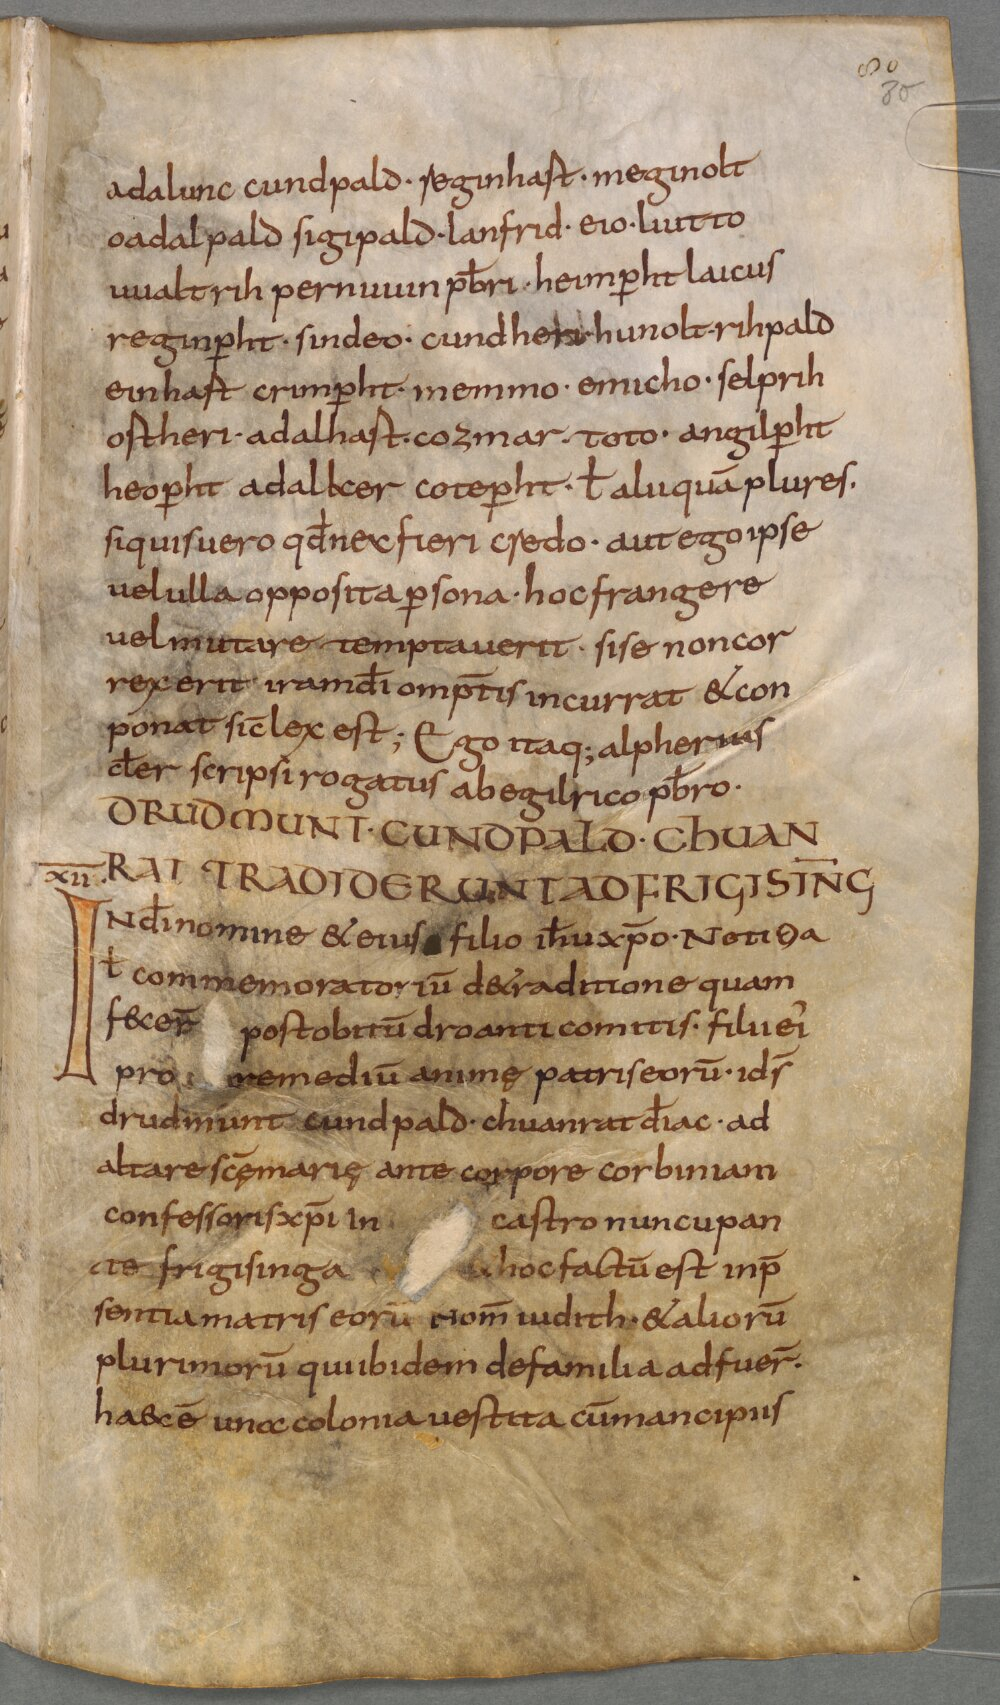 80
80
adalunc cundpald· reginhast· meginolt
oadalpald sigipald· lanfrid· eio· liutto
uualtrih pernuuin pb̄ri· heimꝑht laicus
reginꝑht· sindeo· cundheri· hunolt· rihpald
einhast crimꝑht· memmo· emicho· selprih
ostheri· adalhast· cozmar· toto· angilꝑht
heoꝑht adalker coteꝑht· ł aliiquā plures.
siquis uero qd̄ nex fieri credo· aut ego ipse
uel ulla opposita ꝑsona· hoc frangere
uel mutare temptauerit· si se non cor
rexerit iram dī omp̄tis incurrat & con
ponat sic̄ lex est; Ego itaq; alpheriuis
cl̄er scripsi rogatus ab egilrico pb̄ro·
DRUDMUNT· CUNDPALD· CHUAN
x̄īī· RAT TRADIDERUNT AD FRIGISIN̄G
IN dī nomine & eius filio ih̄u xp̄o· Notitia
ł commemoratoriū de traditione quam
fecer̄ post obitū droanti comitis· filii ei
pro remediū animę patris eorū· id̄s
drudmunt cundpald· chuanrat diac̄· ad
altare scę̄ marię ante corpore corbiniani
confessoris xp̄i in castro nuncupan
te frigisinga hoc factū est inp̄
sentia matris eorū nom̄ iudith· & aliorū
plurimorū qui ibidem de familia adfuer̄·
haec ē una colonia uestita cū mancipiis